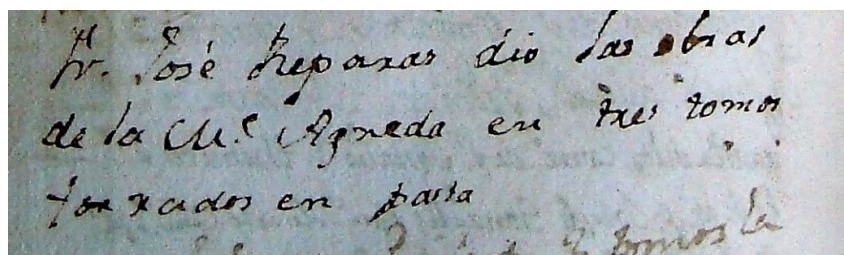 Fr. José Reparas dio las obras
de la Me. Agreda en tres tomos
forrados en pasta
tomos la